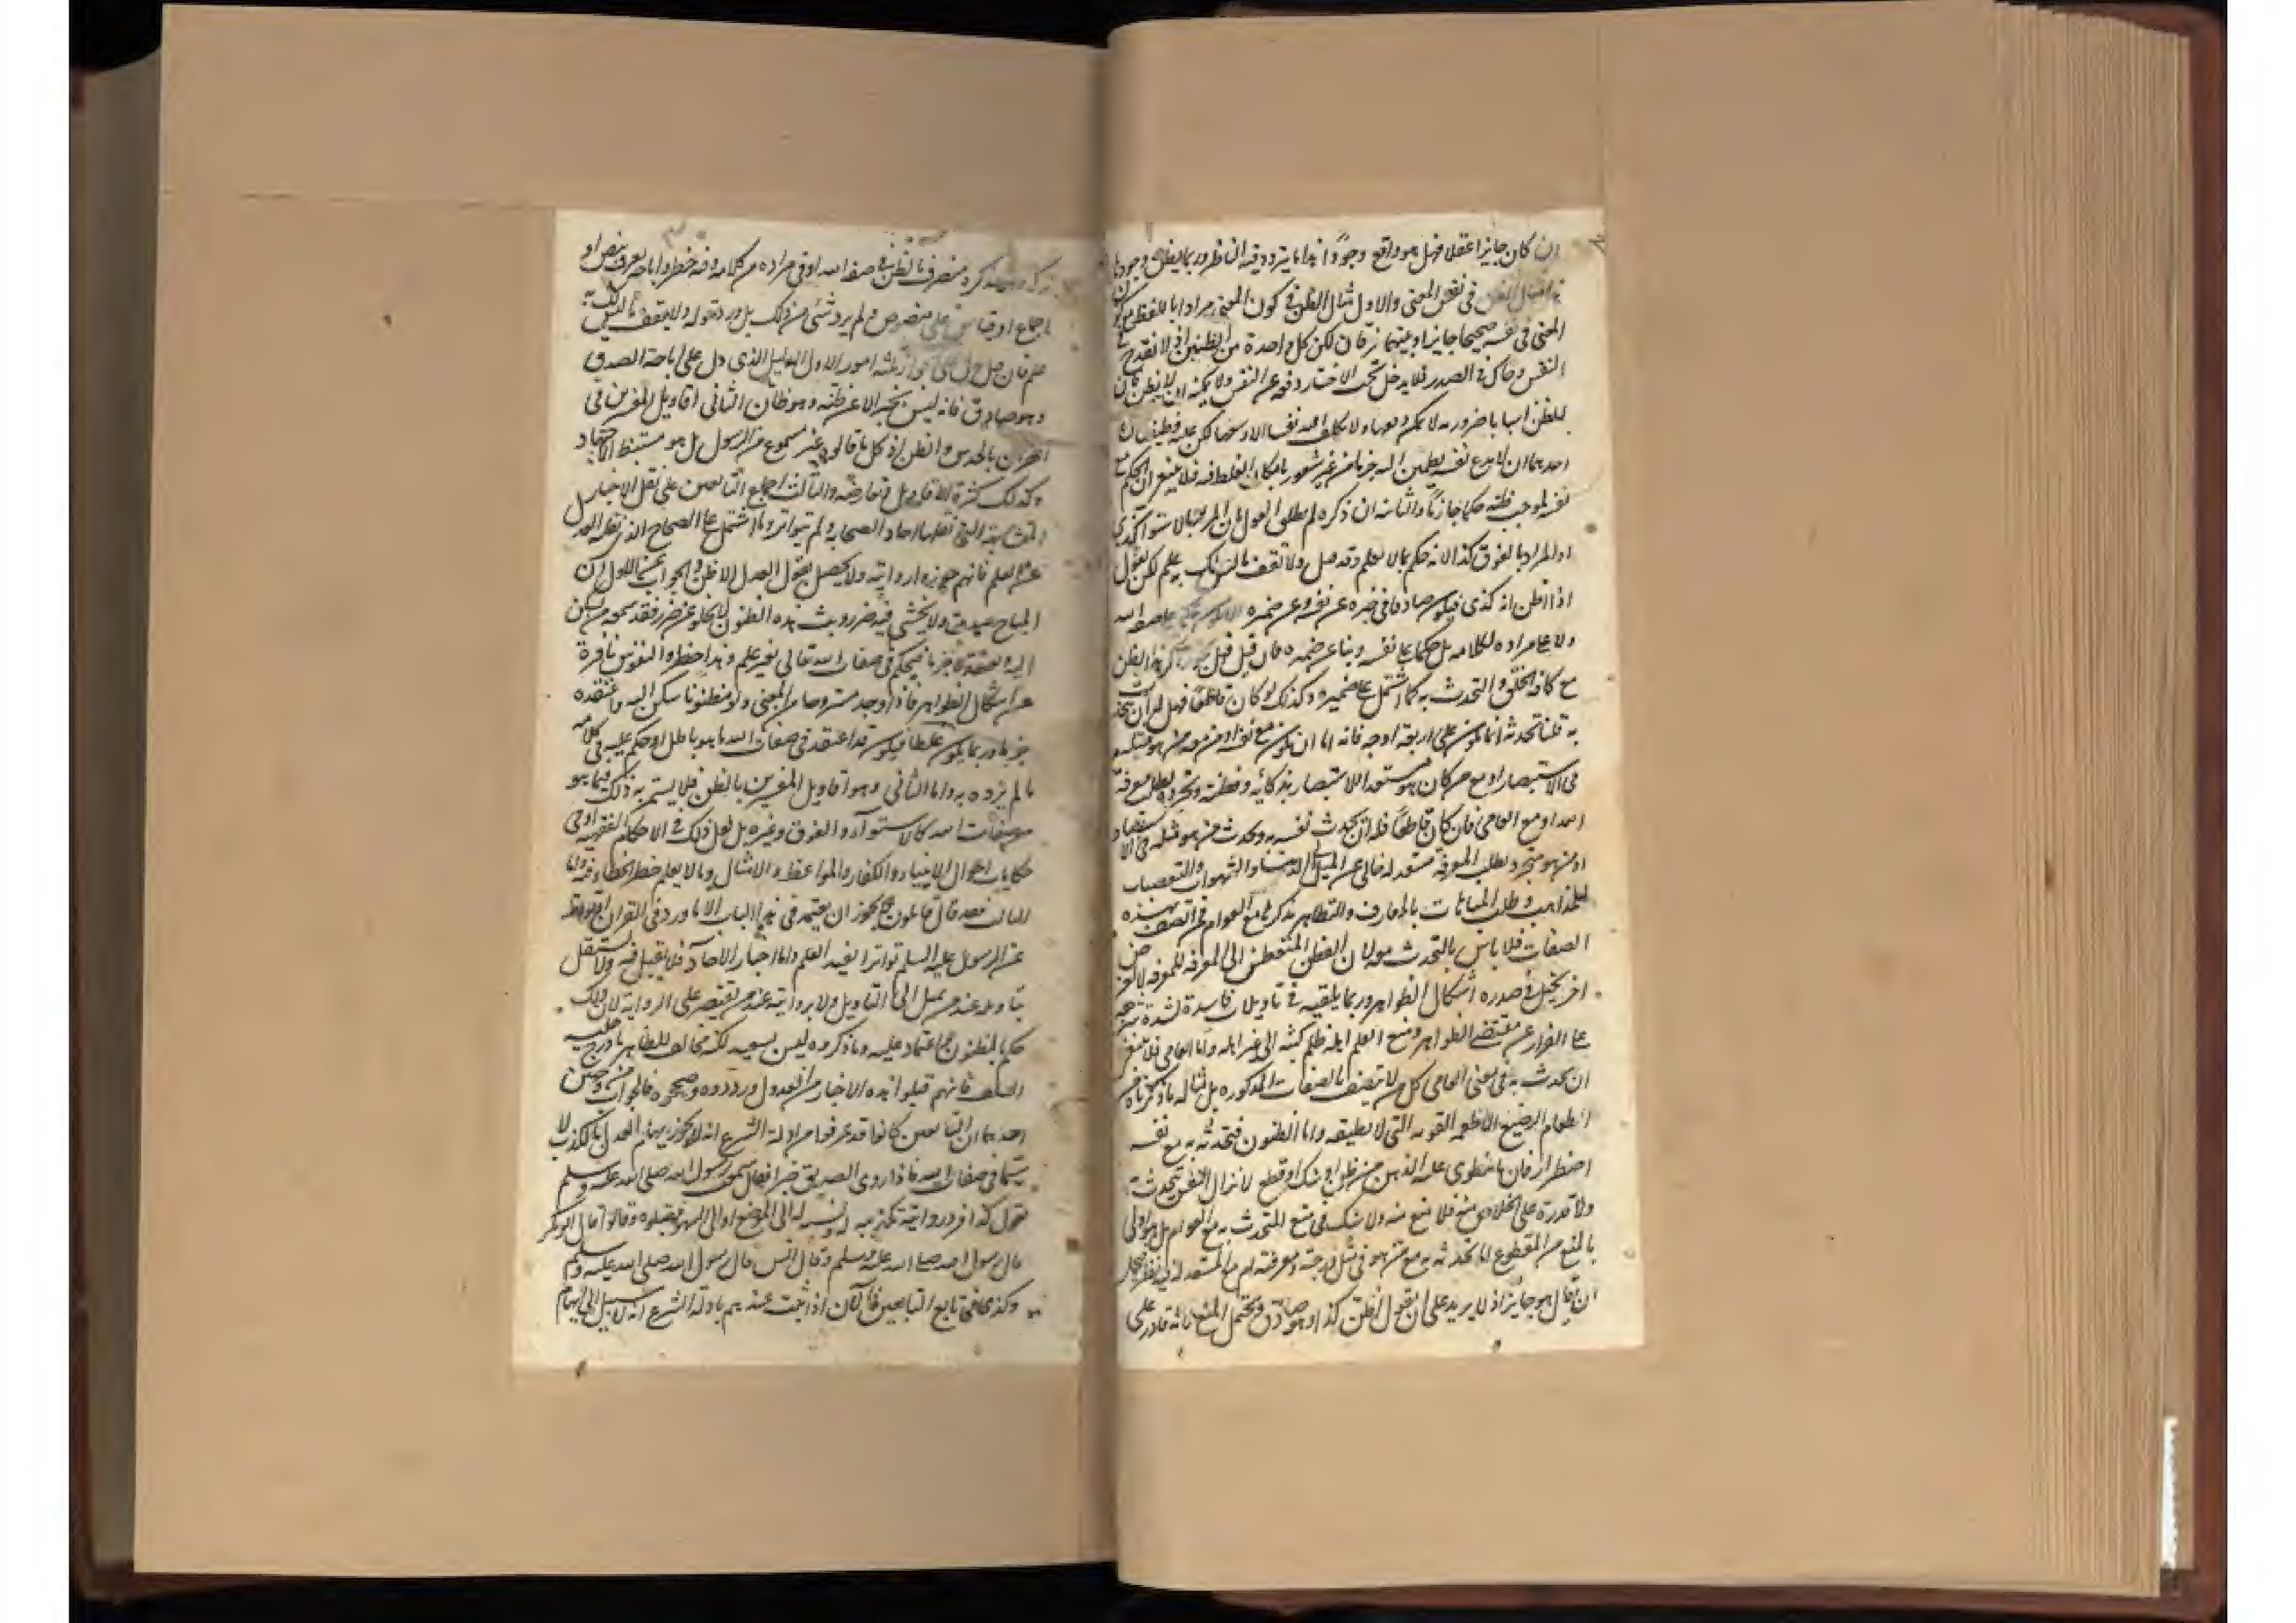 ان كان جايزا عقلا فهل هو واقع وجودا هذا مما يتردد فيه الناظر وربما يظن وجوده
هذا مثال الظن في نفس المعنى والاول مثال الظن في كون المعنى مرادا باللفظ مع كون
المعنى في نفسه صحيحا جايزا وبينهما فرقان لكن كل واحدة من الظنين اذا انقدح في
النفس وحاك في الصدر فلا يدخل تحت الاختيار دفعه عن النفس ولا يمكنه ان لا يظن فان
للظن اسبابا ضرورية لا يمكن دفعها ولا يكلف الله نفسا الا وسعها لكن عليه وظيفتان
احدهما ان لا يدع نفسه يطمئن اليه جزما من غير شعور بامكان الغلط فيه فلا ينبغي ان يحكم مع
نفسه بموجب ظنه حكما جازما والثانية ان ذكره لم يطلق القول بان المراد بالاستواء كذى
او المراد بالفوق كذا لانه حكم بما لا يعلم وقد قال ولا تقف ما ليس لك به علم لكن يقول
اذا اظن انه كذى فيكون صادقا في خبره عن نفسه وعن ضميره ولا يكون حكما على صفة الله
ولا على مراده بكلامه بل حكما على نفسه ونبأ عن ضميره فان قيل فهل يجوز ذكر هذا الظن
مع كافة الخلق والتحدث به كما اشتمل عليه ضميره وكذلك لو كان قاطعا فهل له ان يتحدث
به قلنا تحدثه انما يكون على اربعة اوجه فانه اما ان يكون مع نفسه او مع من هو مثله
في الاستبصار او مع من كان هو مستعد للاستبصار بذكائه وفطنته وتجرده لطلب معرفة
الله او مع العامي فان كان قاطعا فله ان يحدث نفسه به ويحدث من هو مثله في الاستبصار
او من هو متجرد لطلب المعرفة مستعد له خالي عن الميل الى الدنيا والشهوات والتعصبات
للمذاهب وطلب المباهات بالمعارف والتظاهر بذكرها مع العوام فمن اتصف بهذه
الصفات فلا باس بالتحدث معه لان الفطن المتعطش الى المعرفة للمعرفة لا لغرض
اخر يحيك في صدره اشكال الظواهر وربما يلقيه في تاويلات فاسدة لشدة شرهه
على الفرار عن مقتضى الظواهر ومنع العلم اهله ظلم كبثه الى غير اهله واما العامي فلا ينبغي
ان يحدث به وفي معنى العامي كل من لا يتصف بالصفات المذكورة بل مثاله ما ذكرناه من
اطعام الرضيع الاطعمة القوية التي لا يطيقها واما الظنون فتحدثه به مع نفسه
اضطرار فان ما ينطوي عليه الذهن من ظن او شك او قطع لا تزال النفس تتحدث به
ولا قدرة على الخلاص منه فلا منع منه ولا شك في منع التحدث به مع العوام بل هو اولى
بالمنع من المقطوع اما تحدثه به مع من هو في مثل درجته ومعرفته او مع المستعد له فيه نظر فيحتمل
ان يقال هو جايز اذ لا يزيد على ان يقول اظن كذا وهو صادق ويحتمل المنع لانه قادر على
تركه وهو بذكره متصرف بالظن في صفة الله او في مراده من كلامه وفيه خطر واباحته يعرف بنص او
اجماع او قياس على منصوص ولم يرد شئ من ذلك بل ورد قوله ولا تقف ما ليس لك به
علم فان قيل يدل على الجواز ثلثة امور الاول الدليل الذي دل على اباحة الصدق
وهو صادق فانه ليس يخبر الا عن ظنه وهو ظان الثاني اقاويل المفسرين في
القران بالحدس والظن اذ كل ما قالوه غير مسموع من الرسول بل هو مستنبط بالاجتهاد
وكذلك كثرة الاقاويل وتعارضه والثالث اجماع التابعين على نقل الاخبار
المتشابهة التي نقلها احاد الصحابة ولم تتواتر وما اشتمل عليه الصحاح الذي نقله العدل
عن العدل فانهم جوزوا روايته ولا يحصل بقول العدل الا الظن والجواب عن الاول ان
المباح صدق ولا يخشى فيه ضرر وبث هذه الظنون لا يخلو عن ضرر فقد يسمعه من يسكن
اليه ويعتقده جزما فيحكم في صفات الله تعالى بغير علم وهذا خطر والنفوس نافرة
عن اشكال الظواهر فاذا وجد مستروحا من المعنى ولو مظنونا سكن اليه واعتقده
جزما وربما يكون غلطا فيكون قد اعتقد في صفات الله ما هو باطل او حكم عليه في كلامه
ما لم يرده به واما الثاني وهو اقاويل المفسرين بالظن فلا يسلم به ذلك فيما هو
من صفات الله كالاستواء والفوق وغيره بل لعل ذلك في الاحكام الفقهية او في
حكايات احوال الانبياء والكفار والمواعظ والامثال وما لا يعظم خطر الخطاء فيه واما
الثالث فقد قال قائلون لا يجوز ان يعتمد في هذا الباب الا ما ورد في القران او تواتر
عن الرسول عليه السلام تواترا يفيد العلم واما اخبار الاحاد فلا يقبل فيه ولا نشتغل
بتاويله عند من يميل الى التاويل ولا بروايته عند من يقتصر على الرواية لان ذلك
حكم بالمظنون واعتماد عليه وما ذكروه ليس ببعيد لكنه مخالف لظاهر ما درج عليه
السلف فانهم قبلوا هذه الاخبار من العدول ورووه وصححوه فالجواب من وجهين
احدهما ان التابعين كانوا قد عرفوا من ادلة الشرع انه لا يجوز اتهام العدل بالكذب لا
سيما في صفات الله فاذا روى الصديق خبرا فقال سمعت رسول الله صلى الله عليه وسلم
يقول كذا فرد روايته تكذيب له ونسبة له الى الوضع او الى السهو فقبلوه وقالوا قال ابو بكر
قال رسول الله صلى الله عليه وسلم وقال انس قال رسول الله صلى الله عليه وسلم
وكذى في تابع التابعين فالان اذا ثبت عندهم بادلة الشرع انه لا سبيل الى اتهام